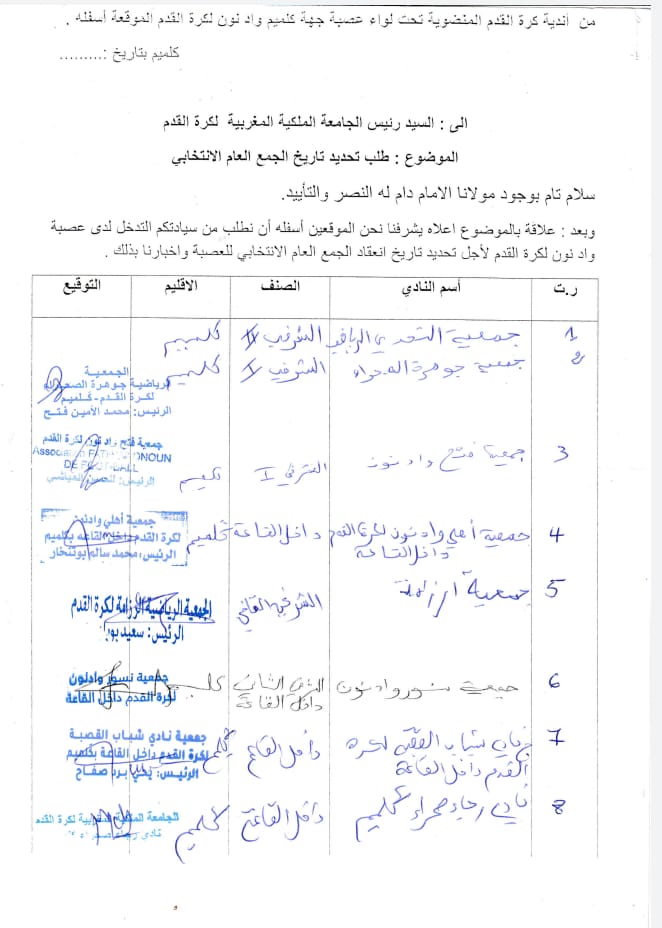 من أندية كرة القدم المنضوية تحت لواء عصبة جهة كلميم واد نون لكرة القدم الموقعة أسفله .
كلميم بتاريخ :.........
الى : السيد رئيس الجامعة الملكية المغربية لكرة القدم
الموضوع : طلب تحديد تاريخ الجمع العام الانتخابي
سلام تام بوجود مولانا الامام دام له النصر والتأييد.
وبعد : علاقة بالموضوع اعلاه يشرفنا نحن الموقعين أسفله أن نطلب من سيادتكم التدخل لدى عصبة
واد نون لكرة القدم لأجل تحديد تاريخ انعقاد الجمع العام الانتخابي للعصبة واخبارنا بذلك .
ر.ت أسم النادي الصنف الاقليم التوقيع
1 جمعية التحدي الرياضي الشرفي II كلميم
2 جمعية جوهرة الصحراء الشرفي I كلميم
الجمعية
الرياضية جوهرة الصحراء
لكرة القدم - كلميم
الرئيس: محمد الأمين فتح
3 جمعية فتح واد نون الشرفي I كلميم
جمعية فتح واد نون لكرة القدم
Association NOUN
DE FOOTBALL
الرئيس:
4 جمعية أهلي واد نون لكرة القدم داخل القاعة كلميم
داخل القاعة
جمعية أهلي وادنون
لكرة القدم داخل القاعة بكلميم
الرئيس: محمد سالم بوتنخار
5 جمعية الرزامة الشرفي
الجمعية الرياضية الرزامة لكرة القدم
الرئيس: سعيد
6 جمعية نسور واد نون الشرفي الثاني كلميم
داخل القاعة
جمعية نسور وادنون
لكرة القدم داخل القاعة
7 نادي شباب القصبة لكرة داخل القاعة كلميم
القدم داخل القاعة
جمعية نادي شباب القصبة
لكرة القدم داخل القاعة بكلميم
الرئيس: يحي
8 نادي رجاء صحراء كلميم داخل القاعة كلميم
الجامعة الملكية المغربية لكرة القدم
نادي رجاء